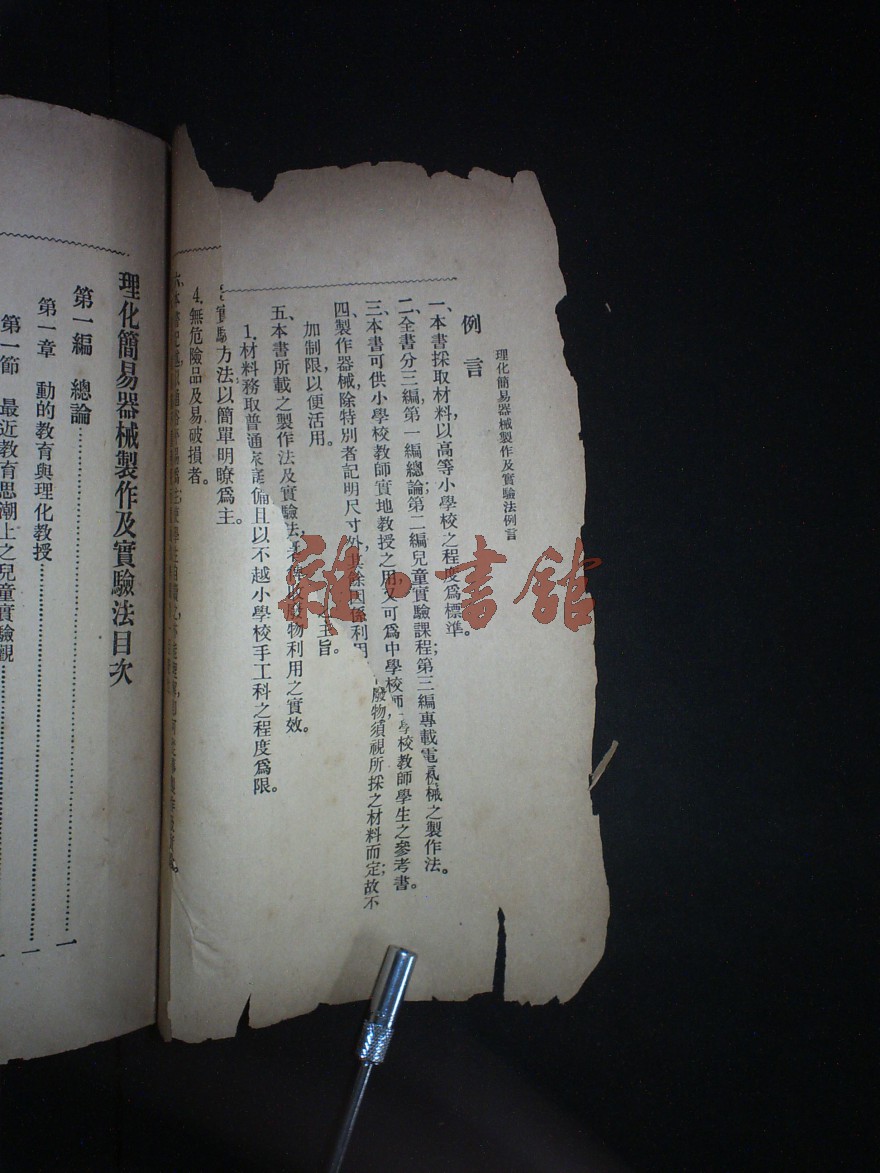 理化簡易器械製作及實驗法例言
例言
一、本書採取材料，以高等小學校之程度爲標準。
二、全書分三編，第一編總論；第二編兒童實驗課程；第三編專載電氣器械之製作法。
三、本書可供小學校教師實地教授之用，又可爲中學校師 學校教師學生之參考書。
四、製作器械，除特別者記明尺寸外，其餘因係利用 廢物須視所採之材料而定；故不
加制限，以便活用。
五、本書所載之製作法及實驗法， 廢物利用之實效。
1.材料務取普通 備且以不越小學校手工科之程度爲限。
主旨。
實驗方法以簡單明瞭爲主。
4.無危險品及易破損者。
六、本書記述
理化簡易器械製作及實驗法目次
第一編 總論……一
第一章 動的教育與理化教授……一
第一節 最近教育思潮上之兒童實驗觀……一
雜·書館